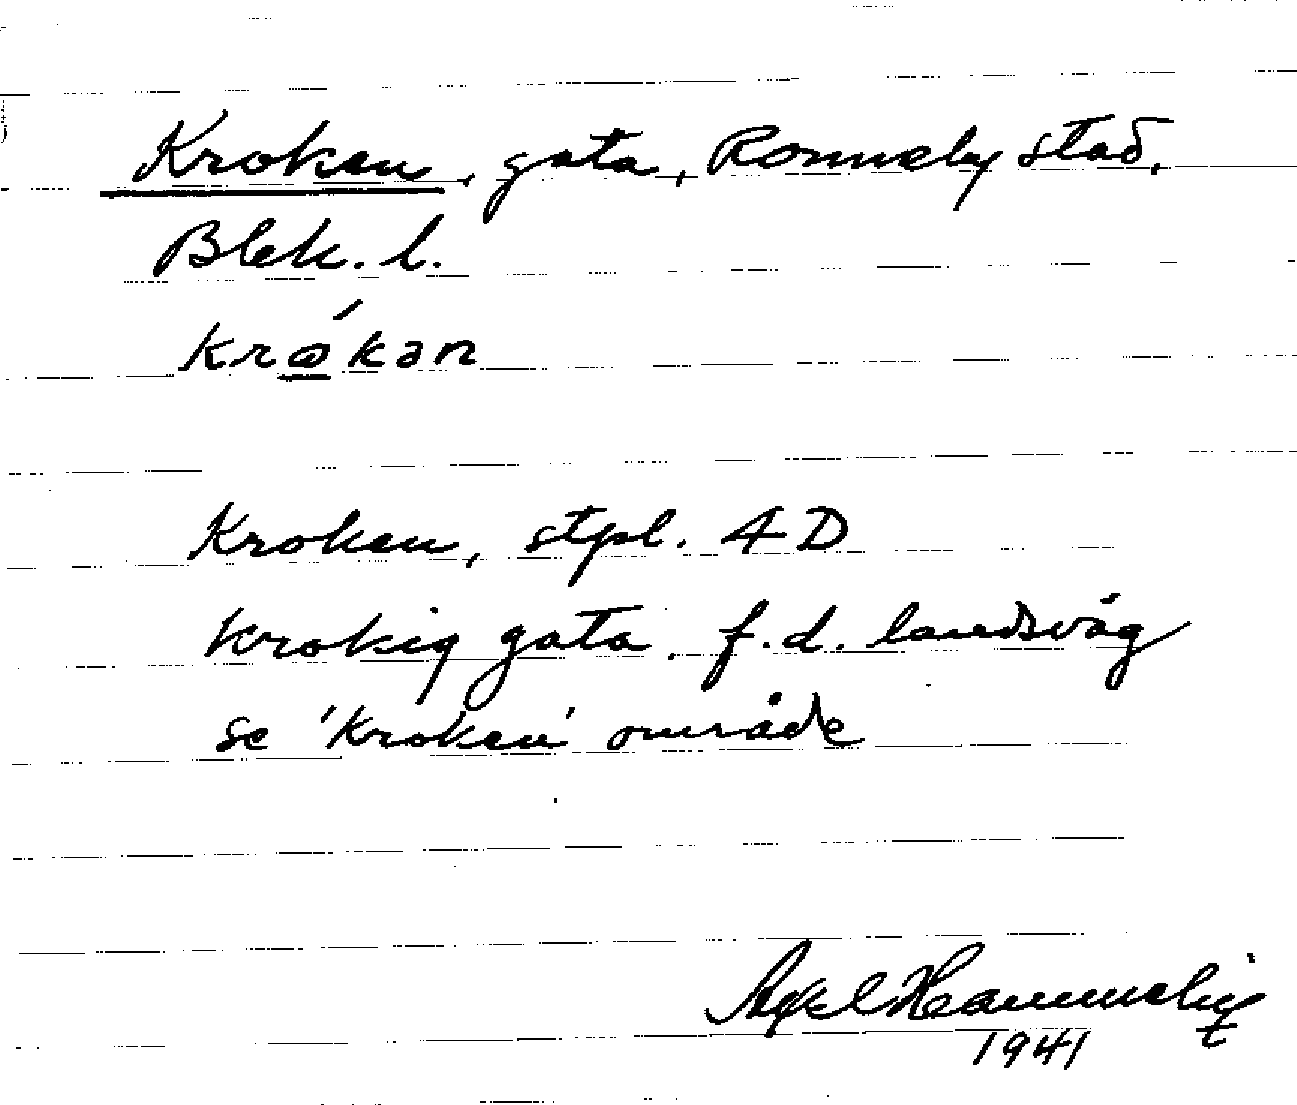 Kroken, gata, Ronneby stad,
Blek. l.
krǿkan
Kroken, stpl. 4D
krokig gata, f.d. landsväg
se 'Kroken' område
Axel
1941